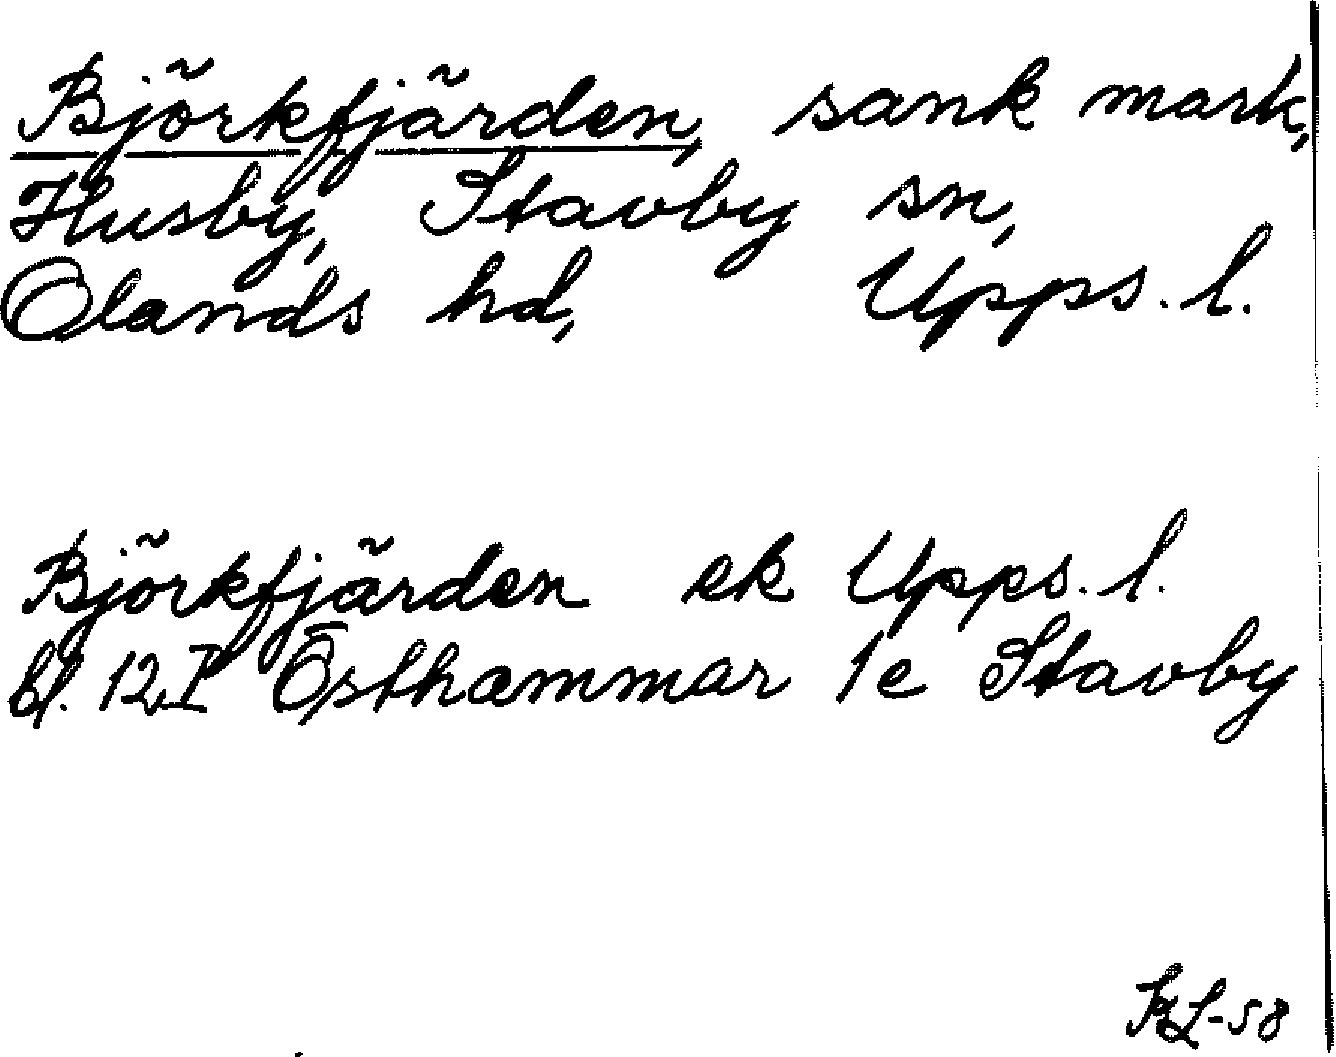 Björkfjärden, sank mark,
Husby, Stavby sn,
Olands hd, Upps. l.
Björkfjärden ek Upps. l.
bl. 12 I Östhammar 1e Stavby
KL-58